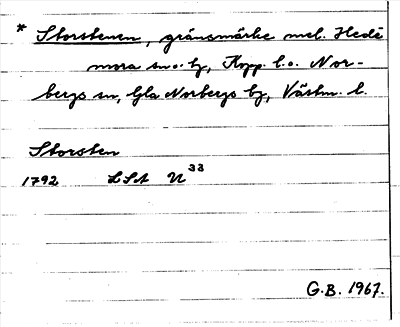 * Storstenen, gränsmärke mel. Hede
mora sn o. hg, Kopp. l. o. Nor-
bergs sn, Gla Norbergs bg, Västm. l.
Storsten
1792 LSA U 33
G.B. 1967.